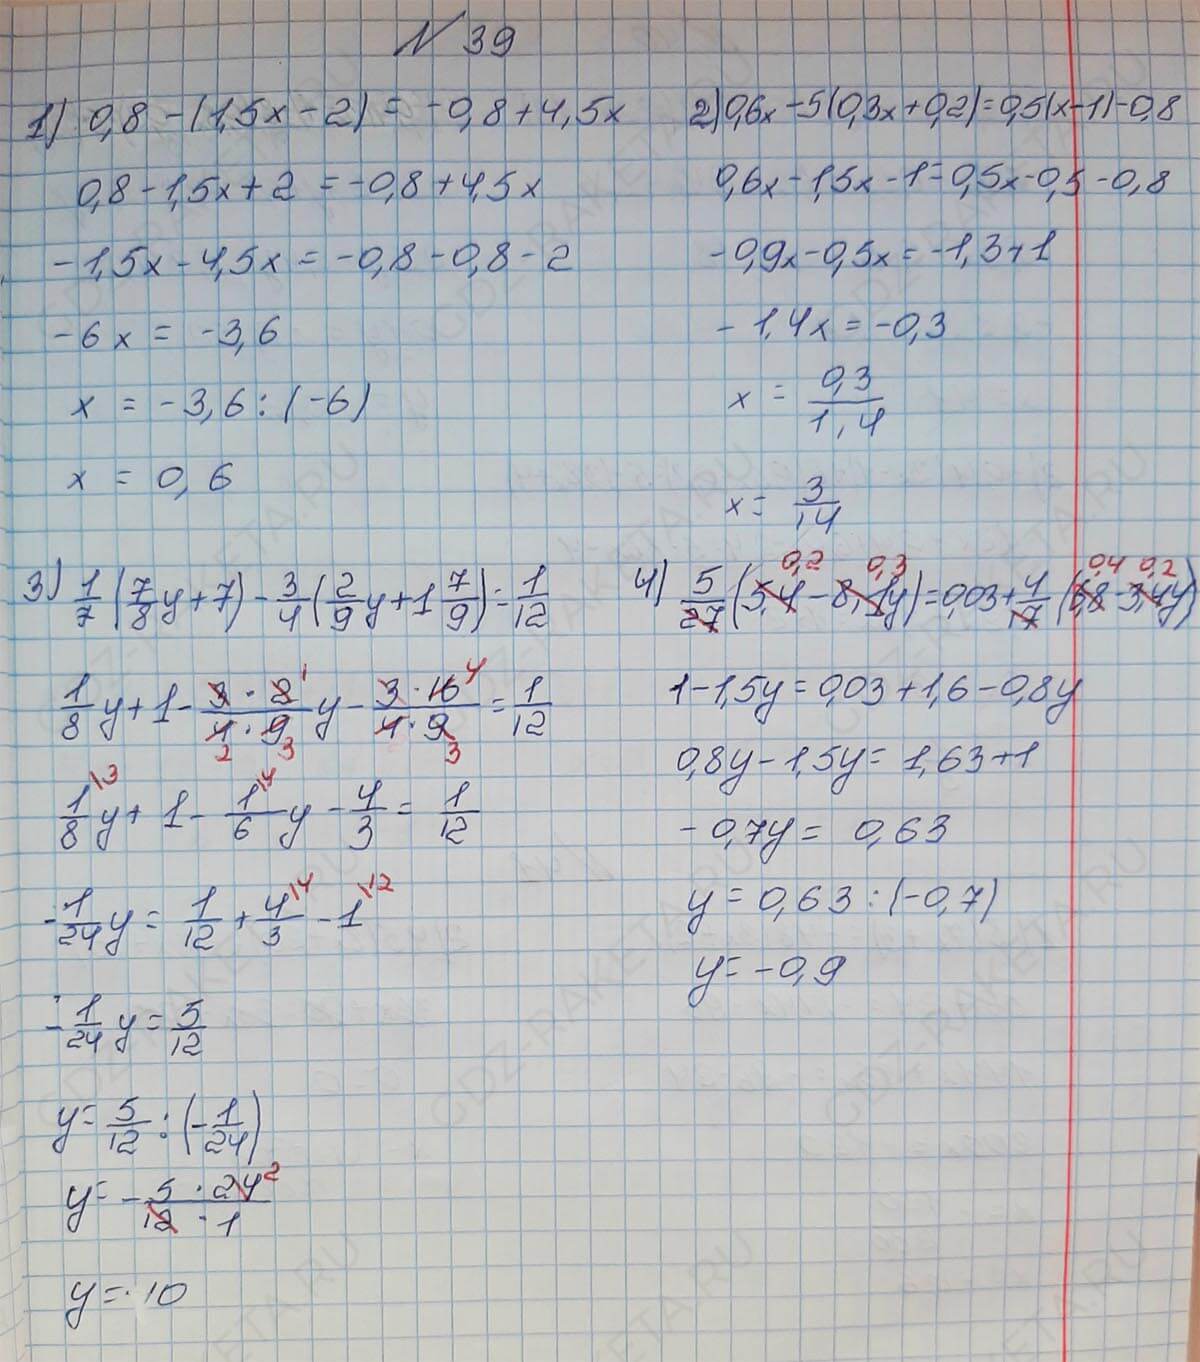 N 39
1) 0,8 - (1,5x - 2) = -0,8 + 4,5x
0,8 - 1,5x + 2 = -0,8 + 4,5x
-1,5x - 4,5x = -0,8 - 0,8 - 2
-6x = -3,6
x = -3,6 : (-6)
x = 0,6
2) 0,6x - 5(0,3x + 0,2) = 0,5(x - 1) - 0,8
0,6x - 1,5x - 1 = 0,5x - 0,5 - 0,8
-0,9x - 0,5x = -1,3 + 1
-1,4x = -0,3
x = 0,3/1,4
x = 3/14
3) 1/7 (7/8 y + 7) - 3/4 (2/9 y + 1 7/9) = 1/12
1/8 y + 1 - 3·2/4·9 y - 3·16/4·9 = 1/12
1 4
2 3 3
1/8 y + 1 - 1/6 y - 4/3 = 1/12
\3 \4
-1/24 y = 1/12 + 4/3 - 1
\4 \12
-1/24 y = 5/12
y = 5/12 : (-1/24)
y = - 5·24/12·1
2
y = -10
4) 5/27 (5,4 - 8,1y) = 0,03 + 4/17 (6,8 - 3,4y)
0,2 0,3 0,4 0,2
1 - 1,5y = 0,03 + 1,6 - 0,8y
0,8y - 1,5y = 1,63 + 1
-0,7y = 0,63
y = 0,63 : (-0,7)
y = -0,9
GDZ-RAKETA.RU